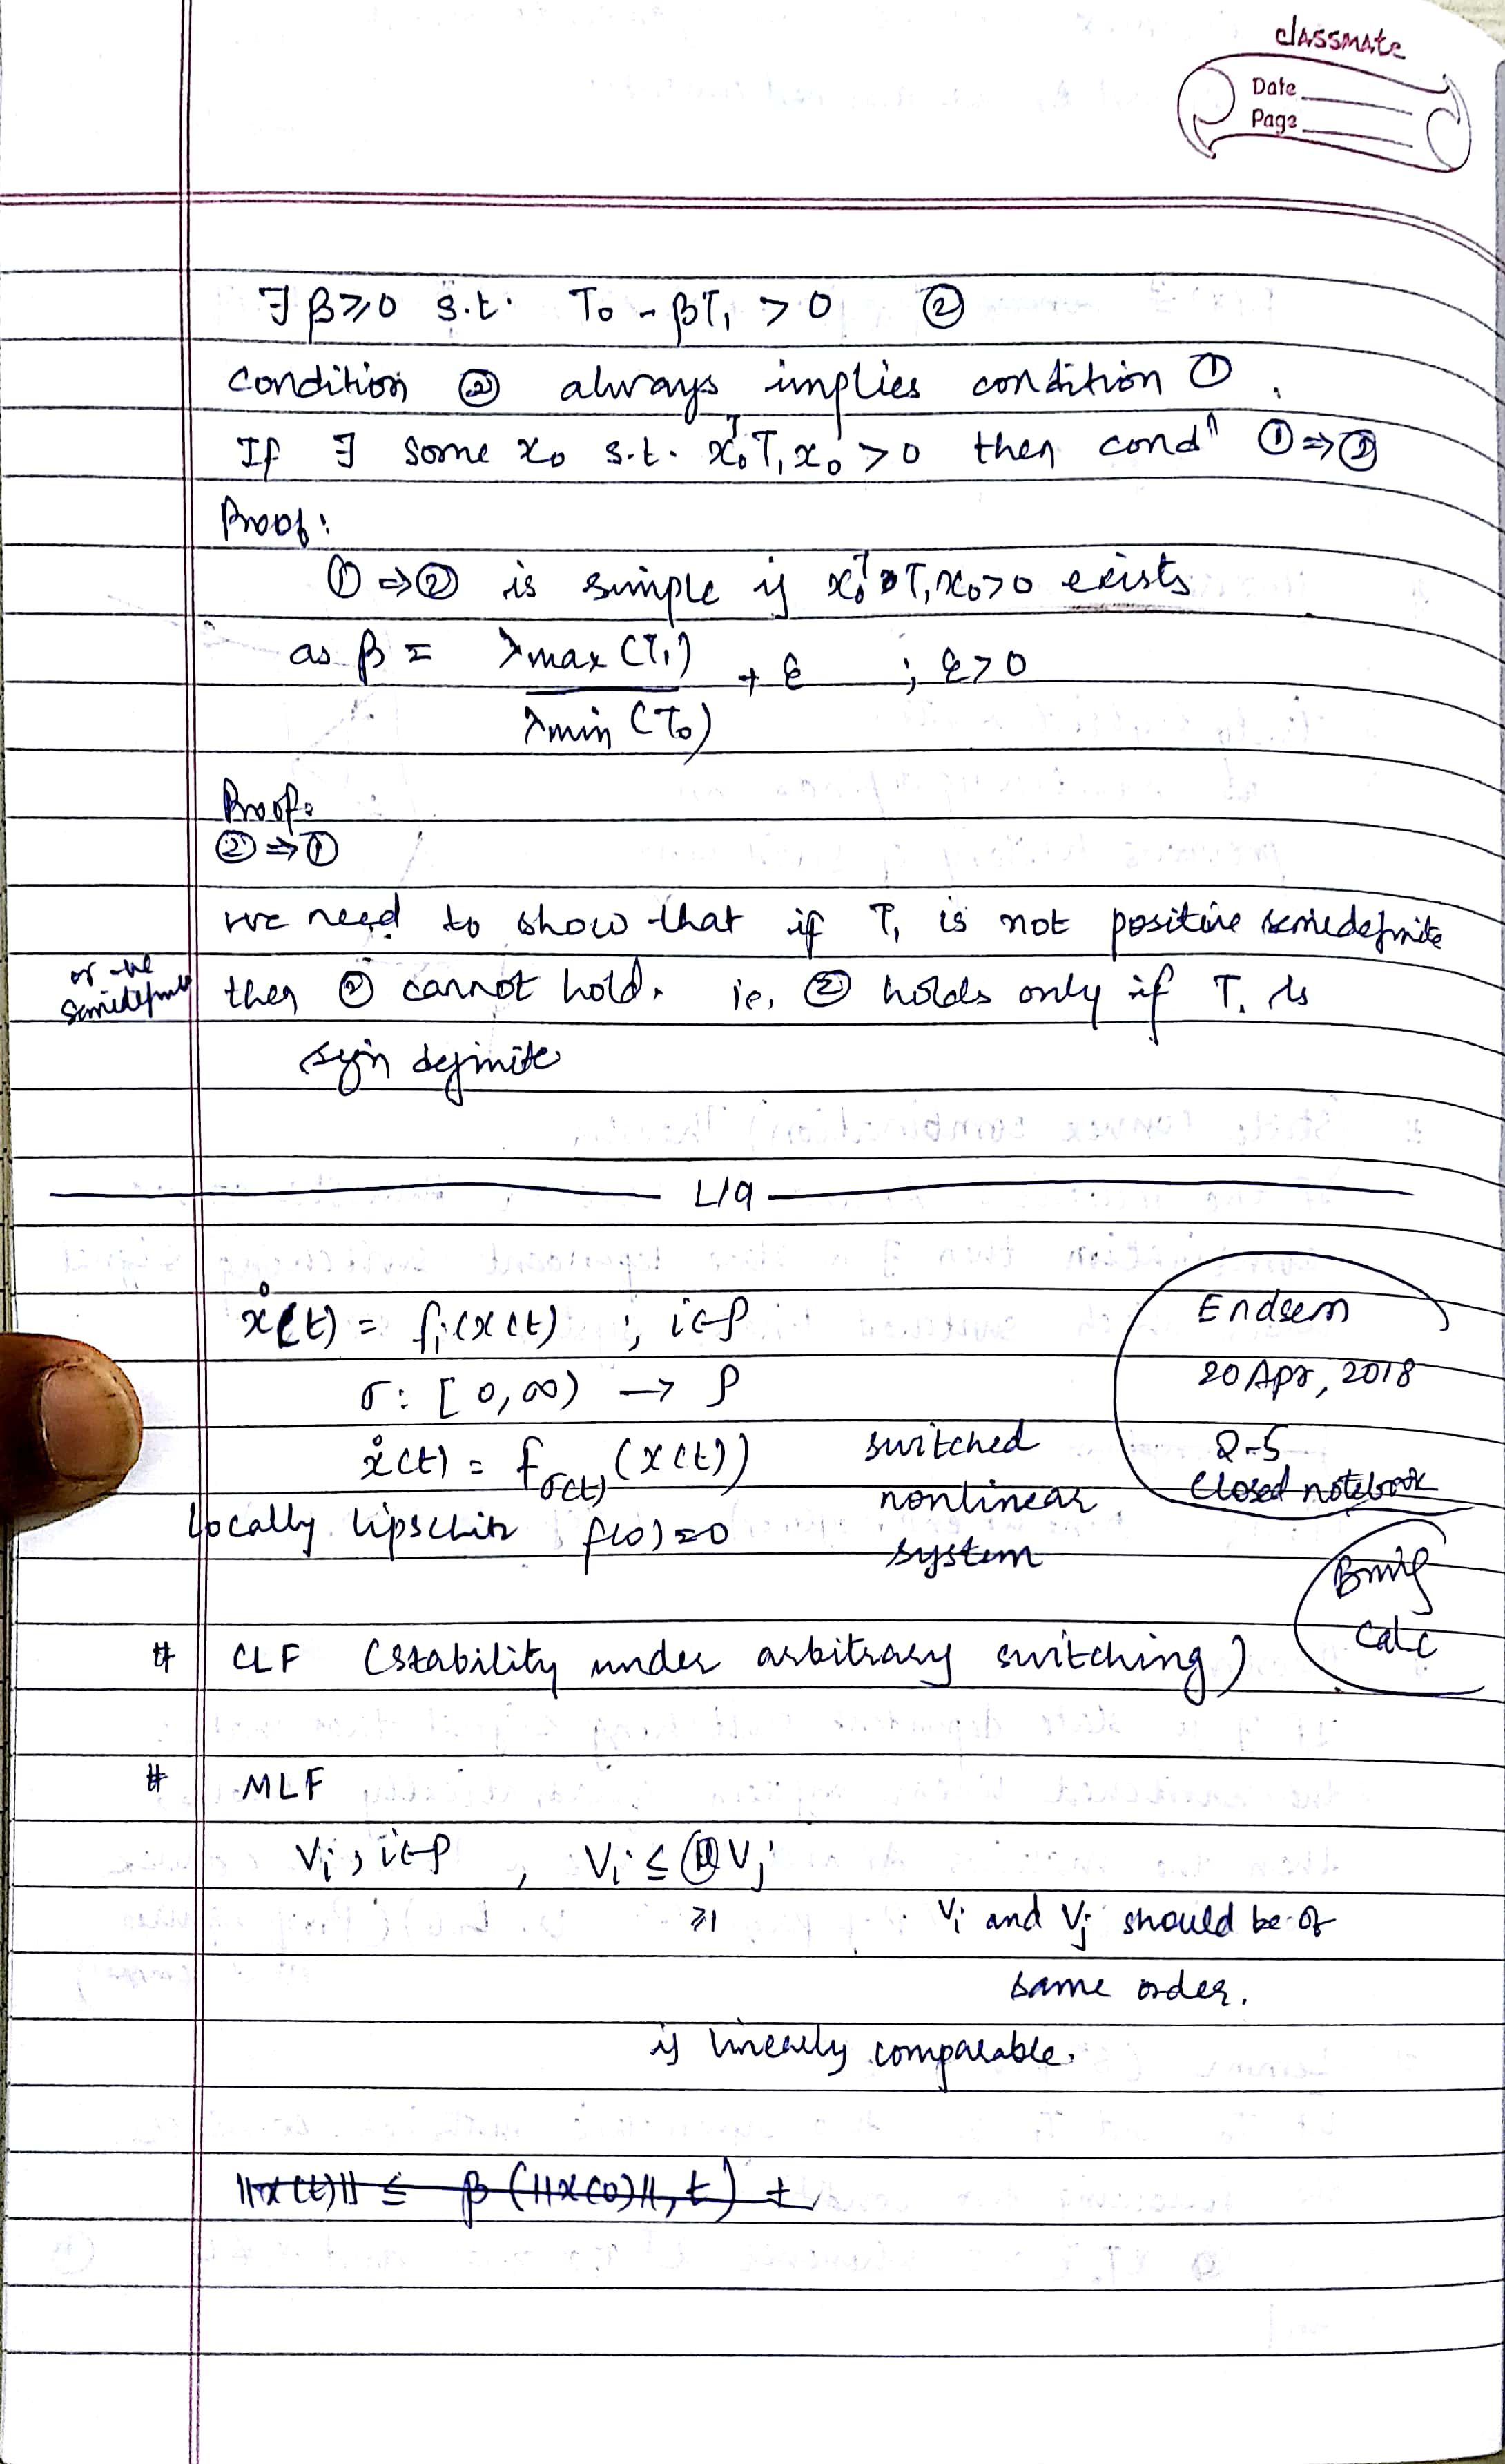 classmate
Date
Page
∃ β≥0 s.t. T₀ - βT₁ > 0 ②
condition ② always implies condition ① .
If ∃ some x₀ s.t. x₀ᵀT₁x₀ > 0 then condⁿ ① ⇒ ②
Proof:
① ⇒ ② is simple if x₀ᵀT₁x₀>0 exists
as β = λmax (T₁) / λmin (T₀) + ε ; ε>0
Proof:
② ⇒ ①
we need to show that if T₁ is not positive semidefinite
or -ve semidefinite
then ② cannot hold. ie, ② holds only if T₁ is
sign definite
L19
ẋ(t) = fᵢ(x(t) ; i∈P
σ: [0,∞) → P
ẋ(t) = f_σ(t) (x(t)) switched
nonlinear
system
locally lipschitz f(0)=0
Endsem
20 Apr, 2018
2-5
Closed notebook
Bring
calc
# CLF (stability under arbitrary switching)
# MLF
Vᵢ, i∈P , Vᵢ ≤ μ Vⱼ
≥1
Vᵢ and Vⱼ should be of
same order.
is linearly comparable.
||x(t)|| ≤ β (||x(0)||, t) +